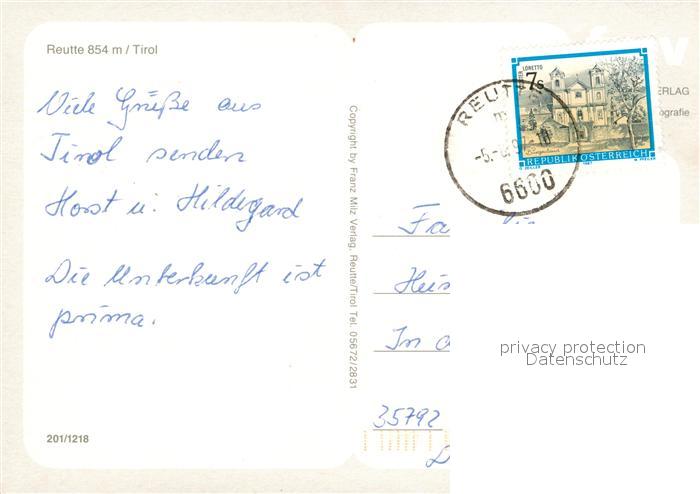 Reutte 854 m / Tirol
Viele Grüße aus
Tirol senden
Horst u. Hildegard
Die Unterkunft ist
prima.
201/1218
Copyright by Franz Milz Verlag, Reutte/Tirol Tel. 05672/2831
LORETTO
7S
REPUBLIK ÖSTERREICH
REUTTE
6600
ERLAG
ografie
Fa
In
35792
privacy protection
Datenschutz